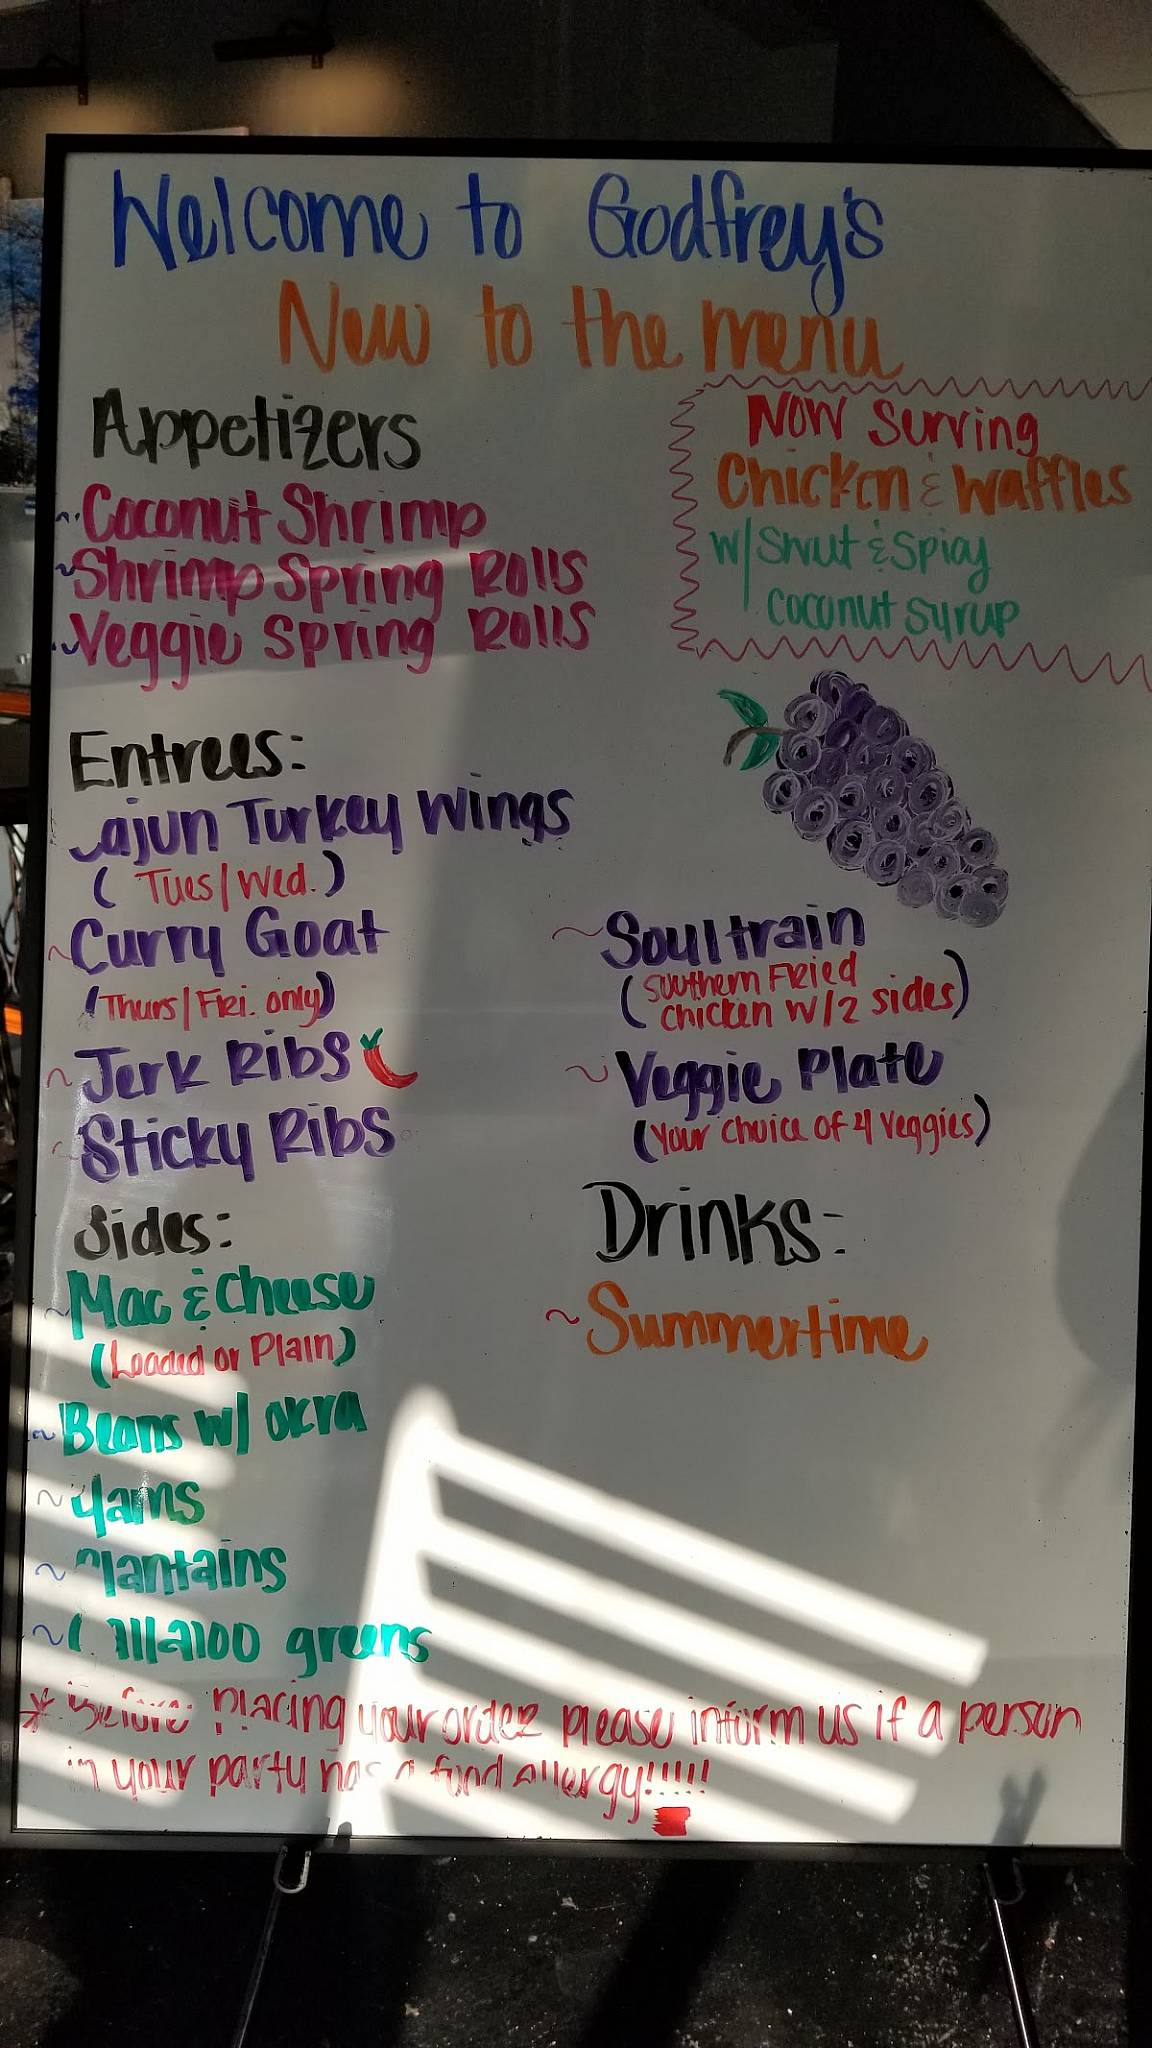 Welcome to Godfrey's
New to the menu
Appetizers
~ Coconut Shrimp
~ Shrimp Spring Rolls
~ Veggie Spring Rolls
Now Serving
Chicken & Waffles
w/ Sweet & Spicy
coconut syrup
Entrees:
Cajun Turkey Wings
(Tues/Wed.)
~ Curry Goat
(Thurs/Fri. only)
~ Jerk Ribs
~ Sticky Ribs
~ Soultrain
(Southern Fried
Chicken w/2 sides)
~ Veggie Plate
(Your choice of 4 veggies)
Sides:
~ Mac & Cheese
(Loaded or Plain)
~ Beans w/ okra
~ Yams
~ Plantains
~ Callaloo greens
Drinks:
~ Summertime
* Before placing your order please inform us if a person
in your party has a food allergy!!!!!